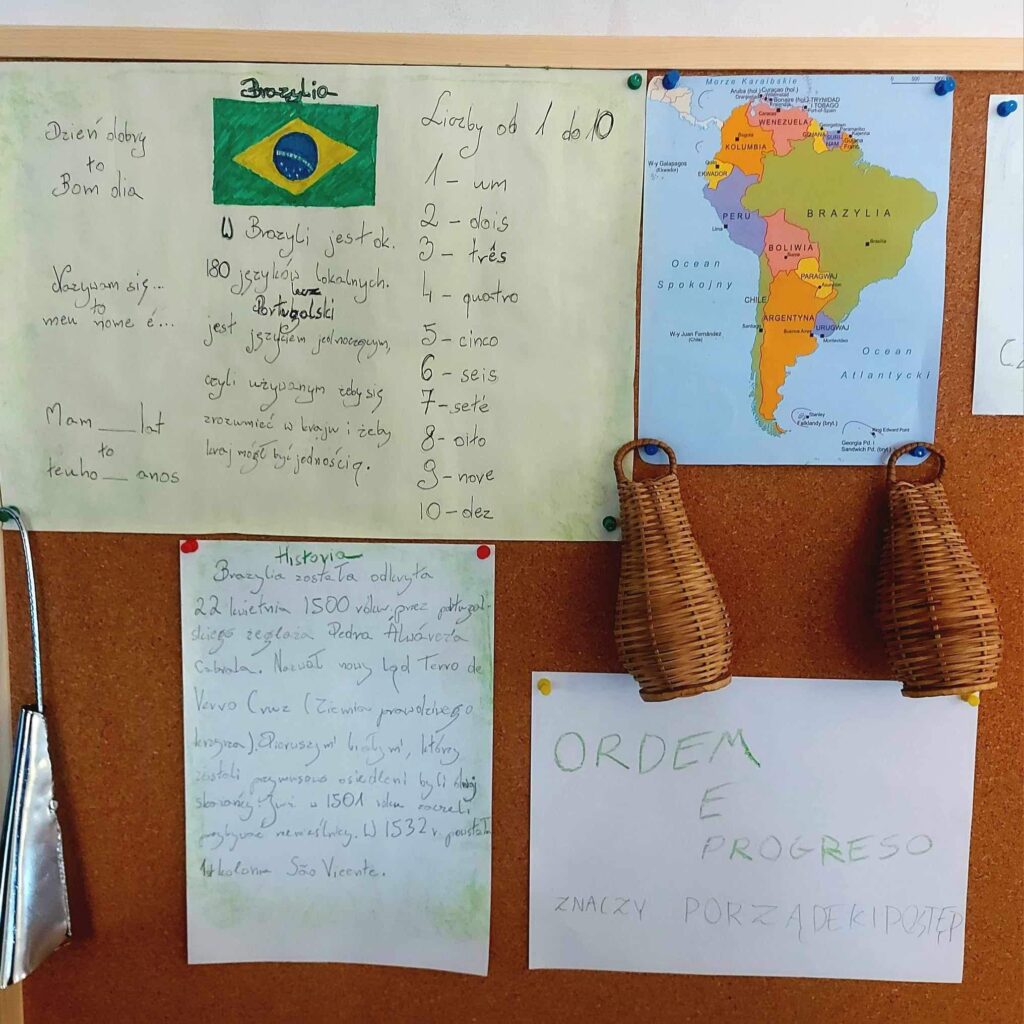 Brazylia
Dzień dobry
to
Bom dia
Nazywam się...
to
meu nome é...
Mam ___ lat
to
tenho __ anos
W Brazyli jest ok.
180 języków lokalnych.
lecz
Portugalski
jest językiem jednoczącym,
czyli używanym żeby się
zrozumieć w kraju i żeby
kraj mógł być jednością.
Liczby od 1 do 10
1 - um
2 - dois
3 - três
4 - quatro
5 - cinco
6 - seis
7 - seté
8 - oito
9 - nove
10 - dez
Morze Karaibskie
0 500 1000
Aruba (hol.)
Curaçao (hol.)
Bonaire (hol.)
TRYNIDAD
I TOBAGO
Port-of-Spain
Caracas
WENEZUELA
Georgetown
Paramaribo
Kajenna
GUJANA
SURI-
NAM
Gujana
Franc.
Bogota
KOLUMBIA
W-y Galapagos
(Ekwador)
Quito
EKWADOR
PERU
Lima
BRAZYLIA
Brasilia
BOLIWIA
Sucre
PARAGWAJ
Asuncion
Ocean
Spokojny
CHILE
ARGENTYNA
Santiago
Buenos Aires
URUGWAJ
Montevideo
W-y Juan Fernández
(Chile)
Ocean
Atlantycki
Stanley
Falklandy (bryt.)
King Edward Point
Georgia Pd. i
Sandwich Pd. (bryt.)
Historia
Brazylia została odkryta
22 kwietnia 1500 roku przez portugal-
skiego żeglaża Pedra Álwáreza
Cabrala. Nazwał nowy ląd Terra de
Verra Cruz (Ziemia prawdziwego
krzyża). Pierwszymi białymi, którzy
zostali przymusowo osiedleni byli dwaj
skazańcy. Już w 1501 roku zaczęli
przybywać rzemieślnicy. W 1532 r. powstała
1 kolonia São Vicente.
ORDEM
E
PROGRESO
ZNACZY PORZĄDEK I POSTĘP